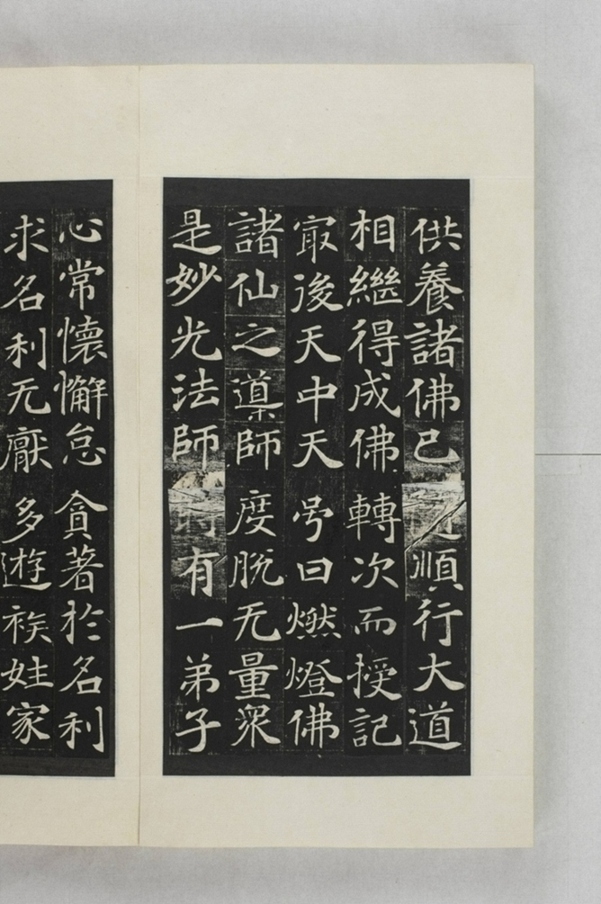 供養諸佛已 順行大道
相繼得成佛轉次而授記
㝡後天中天号曰燃燈佛
諸仙之導師度脫无量衆
是妙光法師時有一弟子
心常懷懈怠貪著於名利
求名利无厭多遊族姓家